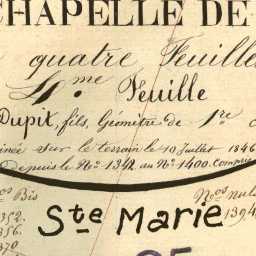 CHAPELLE DE
quatre Feuilles
4.me Feuille
Dupit, fils, Géomètre de 1re
sur le terrain le 10 Juillet 1846
Depuis le No. 1342 au No. 1400. Compris
os Bis
Nos. nuls
352.
1394
356.
Ste Marie
370